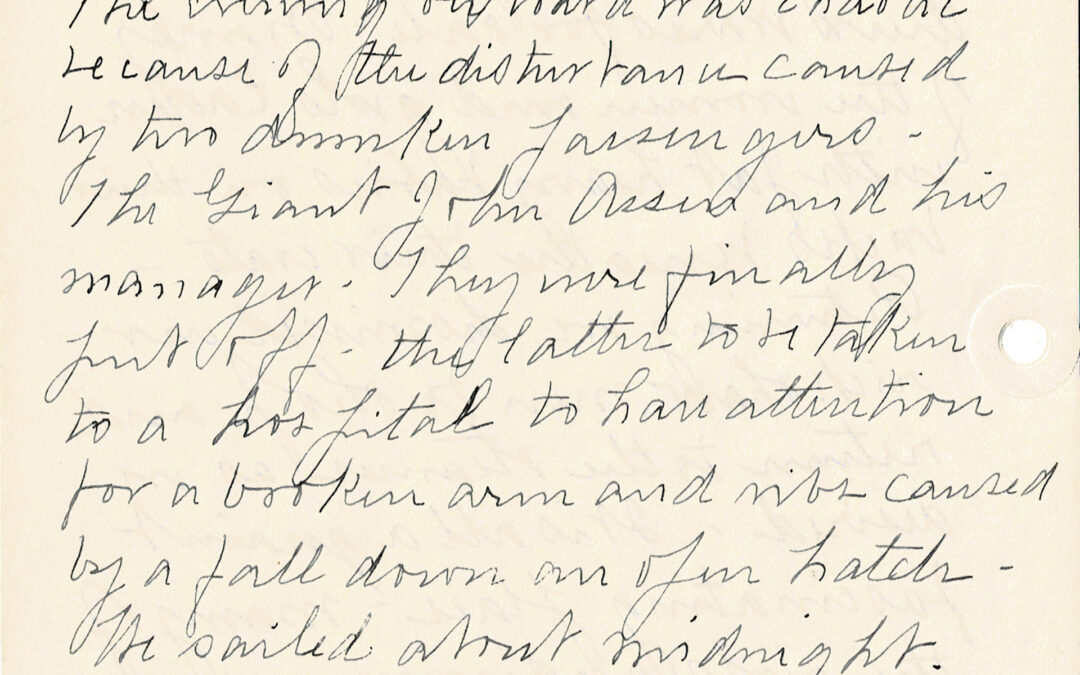 The evening on board was chaotic
because of the disturbance caused
by two drunken passengers -
The Giant John Assen and his
manager. They were finally
put off - the latter to be taken
to a hospital to have attention
for a broken arm and ribs caused
by a fall down an open hatch -
We sailed about midnight.